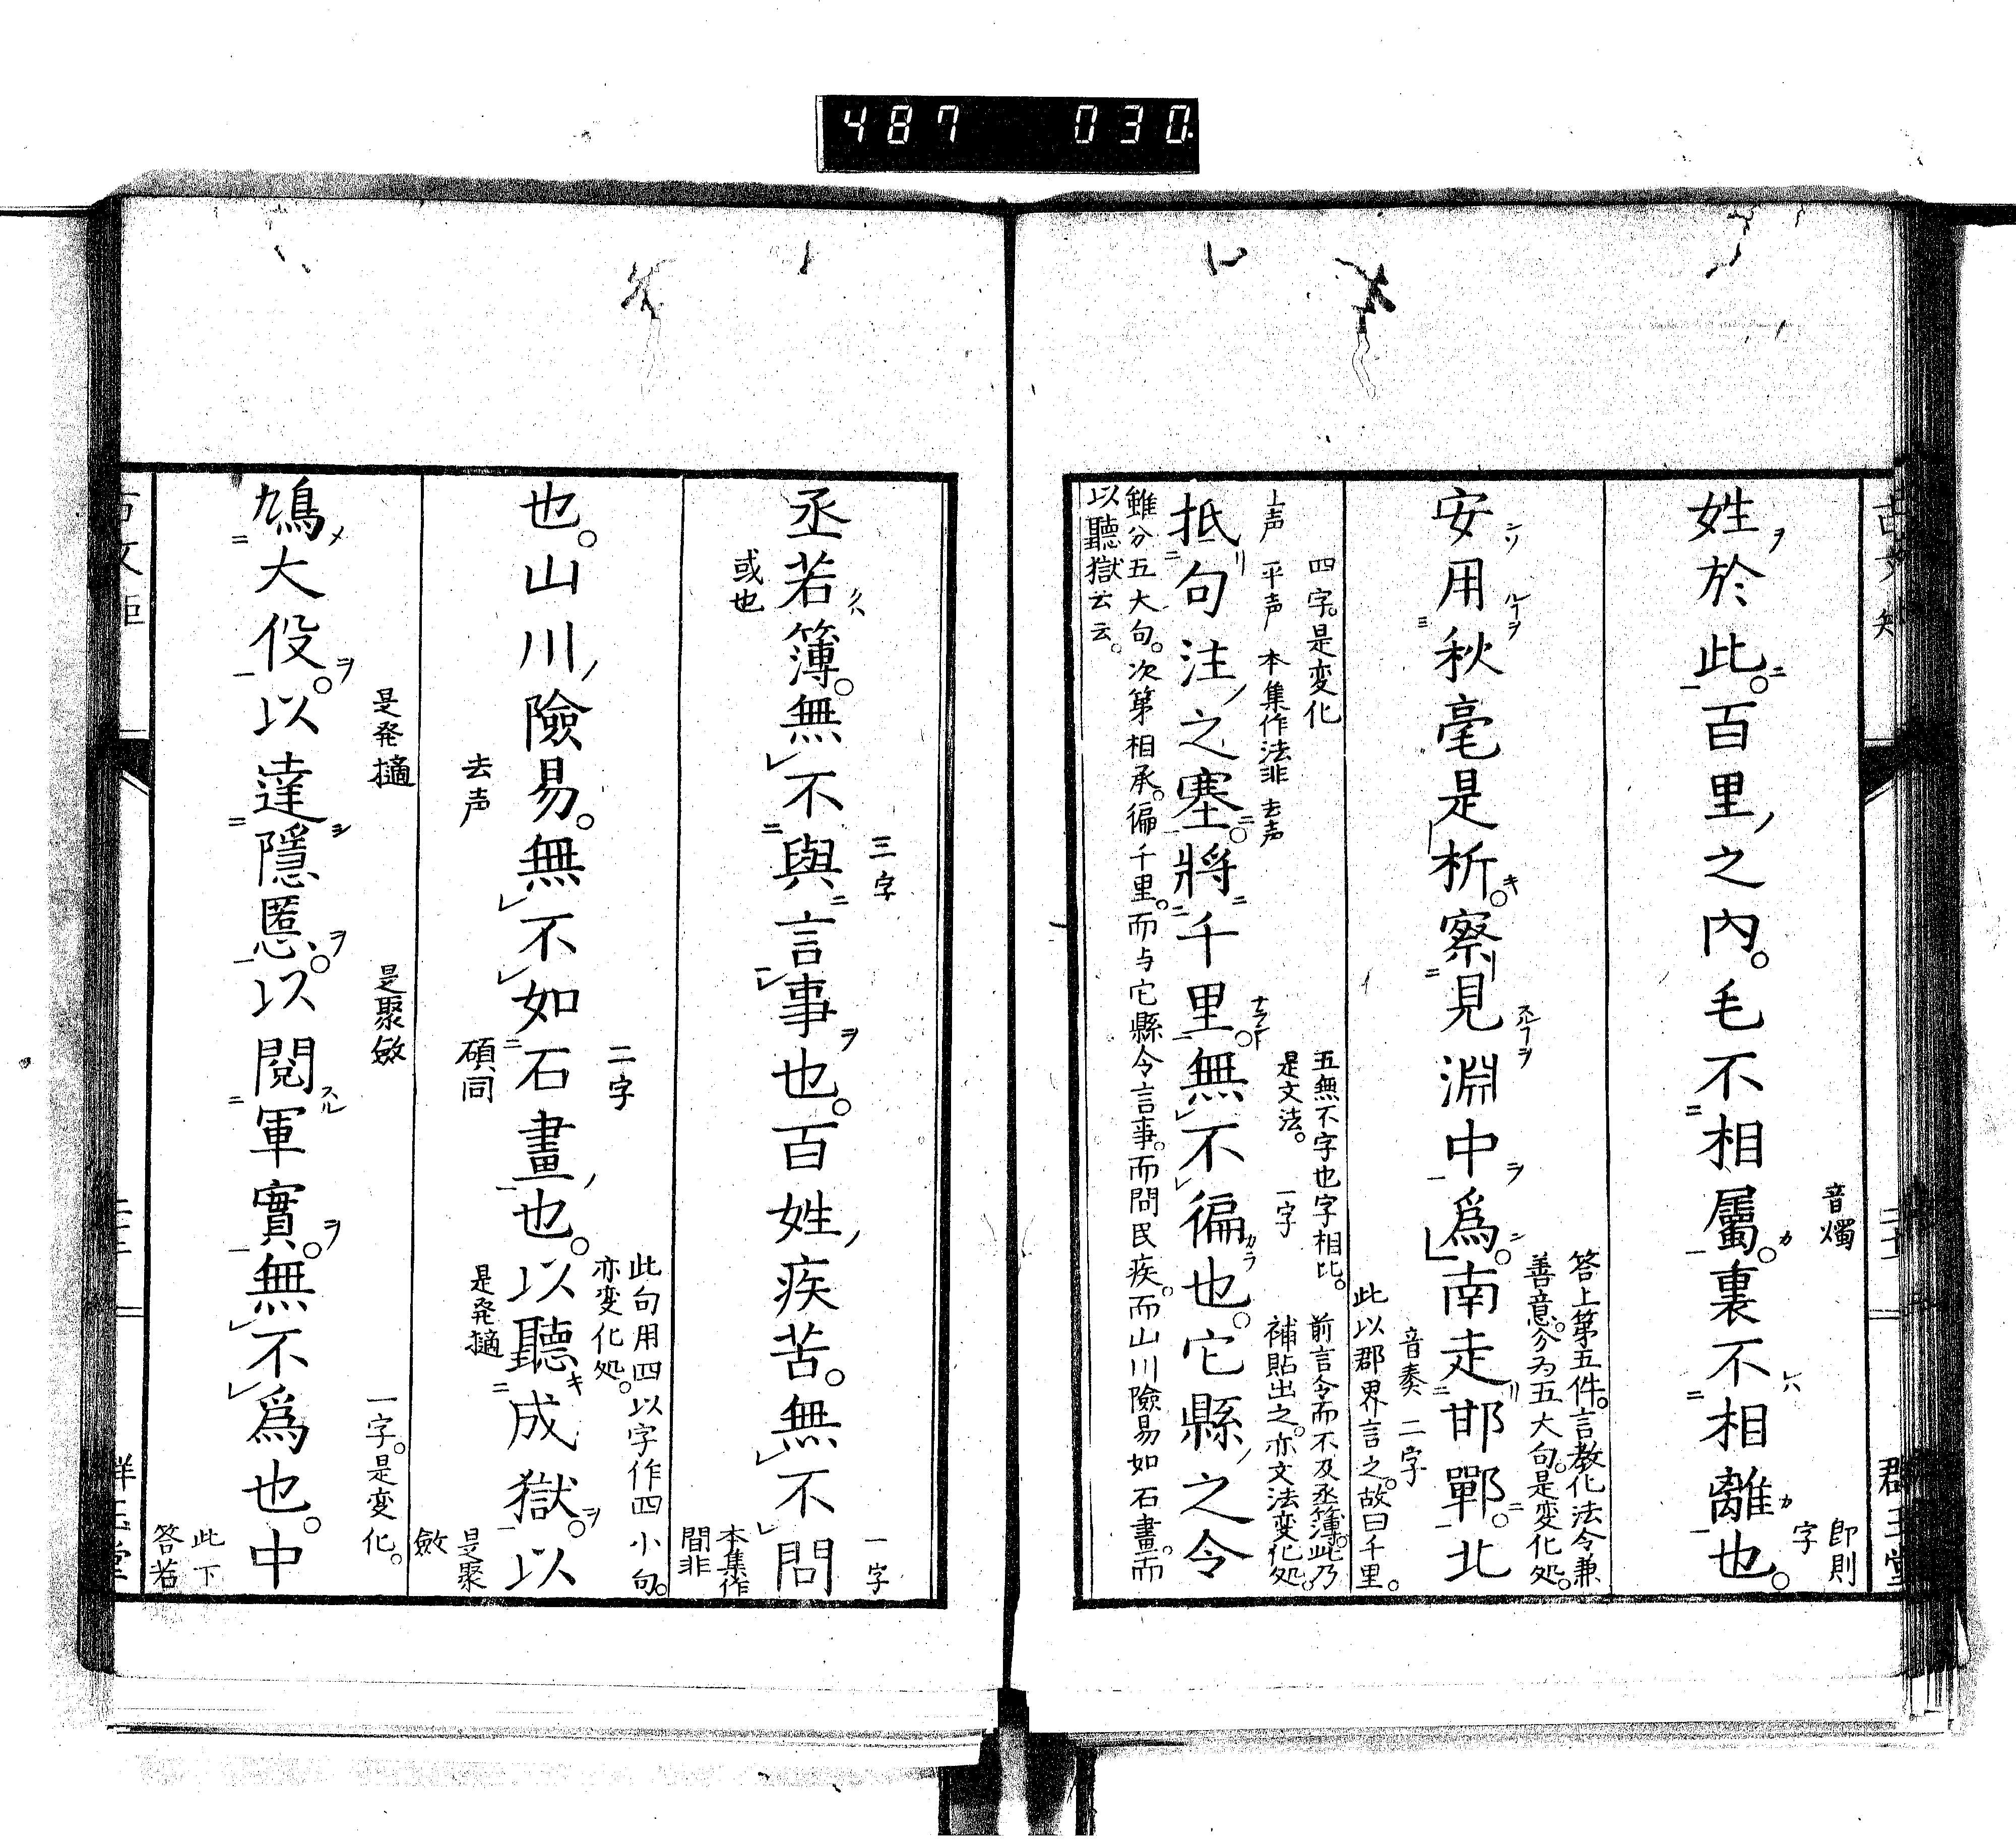 487 030
姓於此。百里之內。毛不相屬。裏不相離也。
音燭
即則字
安用秋毫是析。察見淵中為。南走邯鄲。北
答上第五件。言教化法令兼
善意。分為五大句。是変化処。
音奏 二字
此以郡界言之。故曰千里。
抵句注之塞。將千里。無不徧也。它縣之令
四字。是変化
上声 平声 本集作法非 去声
五無不字也字相比。
是文法。
一字
前言令而不及丞簿。此乃
補貼出之。亦文法変化処。
雖分五大句。次第相承。徧千里。而与它縣令言事。而問民疾。而山川險易如石畫。而
以聽獄云云。
丞若簿。無不與言事也。百姓疾苦。無不問
或也
三字
一字
本集作
間非
也。山川險易。無不如石畫也。以聽成獄。以
去声
二字
碩同
此句用四以字作四小句。
亦変化処。
是発擿
是聚
斂
鳩大役。以達隱慝。以閱軍實。無不為也。中
是発擿
是聚斂
一字。是変化。
此下
答若